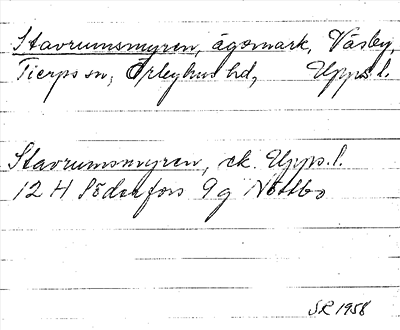 Stavrumsmyren, ägomark, Väsby,
Tierps sn, Örbyhus hd, Upps.l.
Stavrumsmyren, ek. Upps.l.
12 H Söderfors 9g Nöttbo
SR 1958